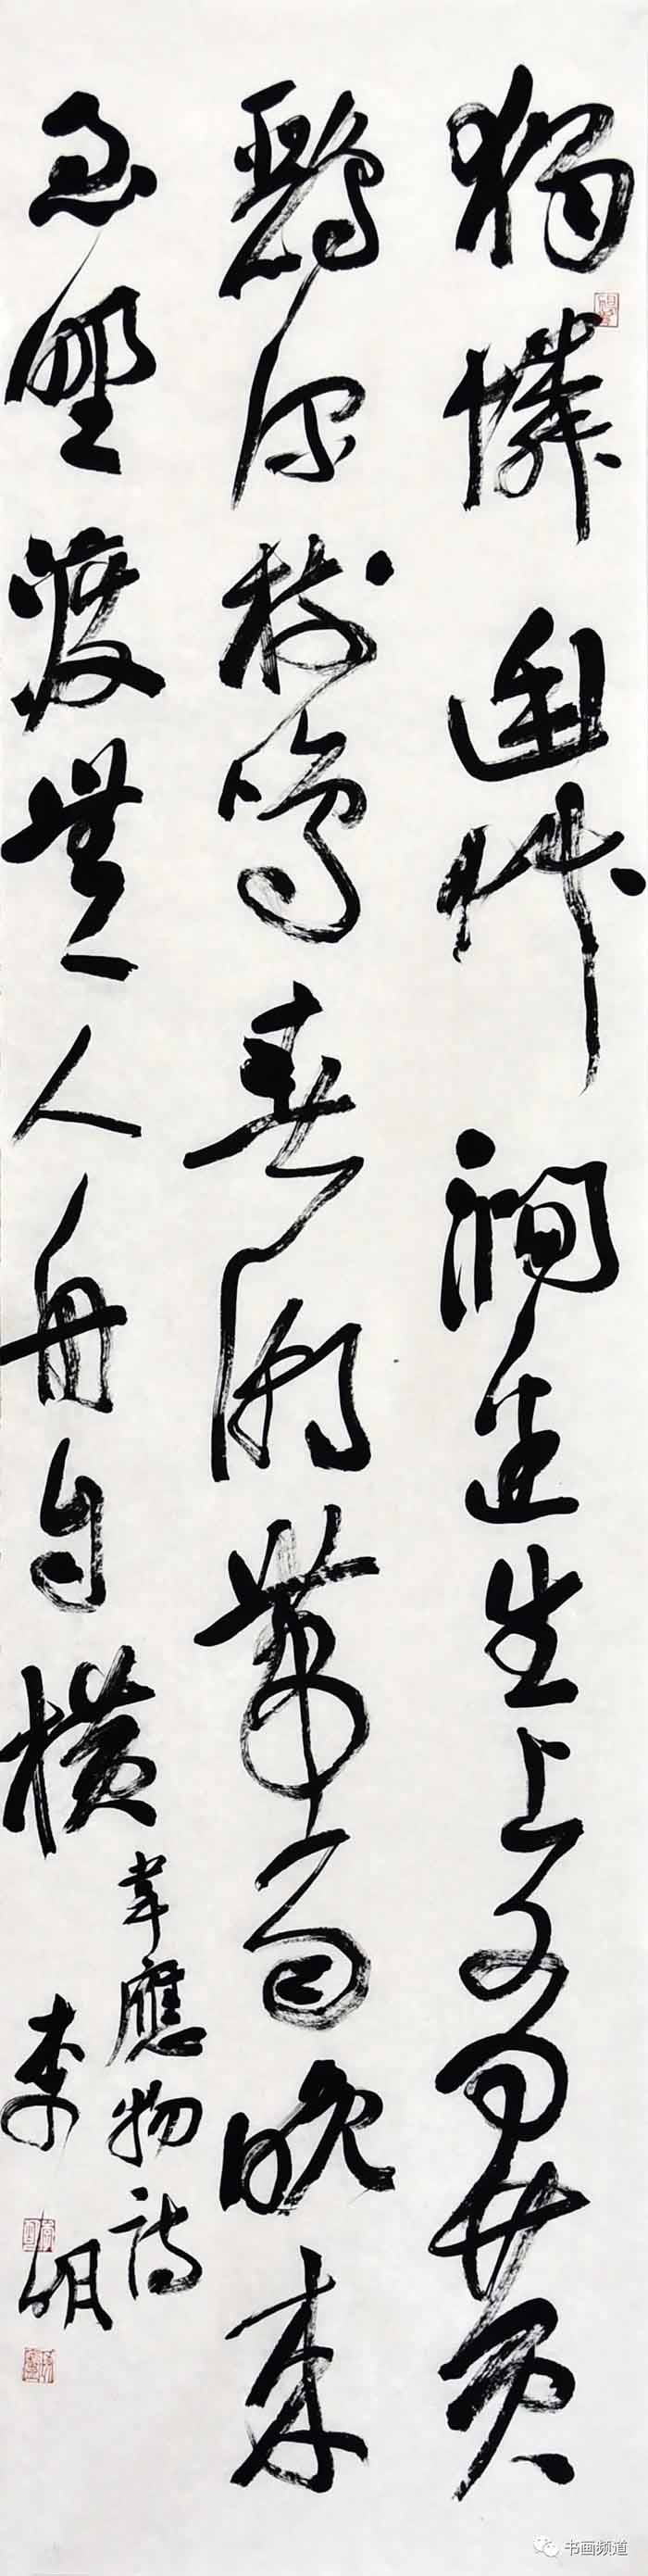 獨憐幽艸澗邊生上有黃
鸝深樹鳴春潮帶雨晚來
急野渡無人舟自橫
韋應物詩
李明
书画频道